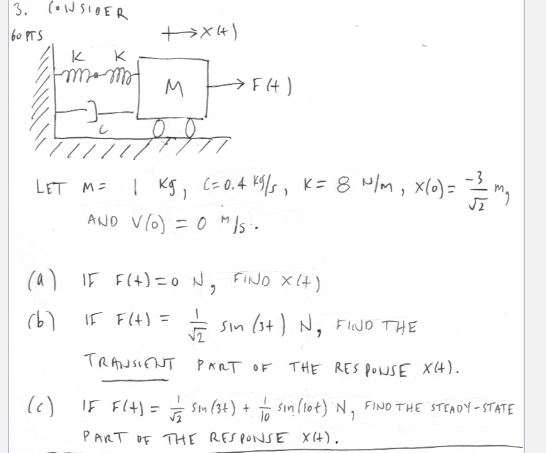 3. CONSIDER
60 PTS
x(t)
K K
M
F(t)
c
LET M= 1 kg, C=0.4 kg/s, K= 8 N/m, x(0)= -3/√2 m,
AND V(0) = 0 m/s.
(a) IF F(t)=0 N, FIND x(t)
(b) IF F(t) = 1/√2 sin(3t) N, FIND THE
TRANSIENT PART OF THE RESPONSE x(t).
(c) IF F(t) = 1/√2 sin(3t) + 1/10 sin(10t) N, FIND THE STEADY-STATE
PART OF THE RESPONSE x(t).